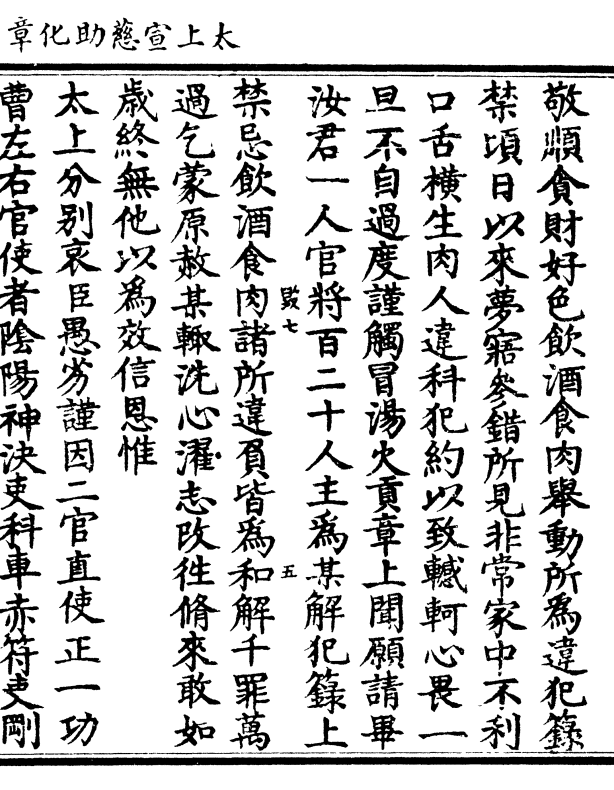 太上宣慈助化章
敬順貪財好色飲酒食肉舉動所為違犯籙
禁頃日以來夢寤參錯所見非常家中不利
口舌橫生肉人違科犯約以致轗軻心畏一
旦不自過度謹觸冒湯火貢章上聞願請畢
汝君一人官將百二十人主為某解犯籙上
禁忌飲酒食肉諸所違負皆為和解千罪萬
過乞蒙原赦某輙洗心濯志改徃脩來敢如
歲終無他以為效信恩惟
太上分别哀臣愚劣謹因二官直使正一功
曹左右官使者陰陽神決吏科車赤符吏剛
七
五